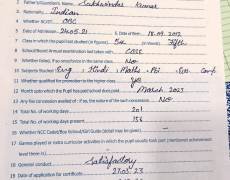 Father's/Guardian's Name Sukhwinder Kumar
3 Nationality Indian
4 Whether SC/ST OBC
5 Date of Admission 24.05.21 6. Date of Birth 18.09.2012
Class in which the pupil last studied (in figure) 5th (in words) Fifth
8 School/Board Annual examination last taken with CBSE
9 Whether failed, if so once/twice in the same class No
10 Subjects Studied Eng, Hindi, Maths
11 Whether qualified for promotion to the higher class Yes
12 Month up to which the pupil has paid school dues March 2023
13 Any fee concession availed of: if so, the nature of such concession No
14 Total No. of working days 201
15 Total No. of working days present 156
16 Whether NCC Cadet/Boy School/Girl Guide (detail may be given)
17 Games played or extra curricular activities in which the pupil usually took part (mentioned achievement
level there in)
18 General conduct Satisfactory
19 Date of application for certificate 27.05.23